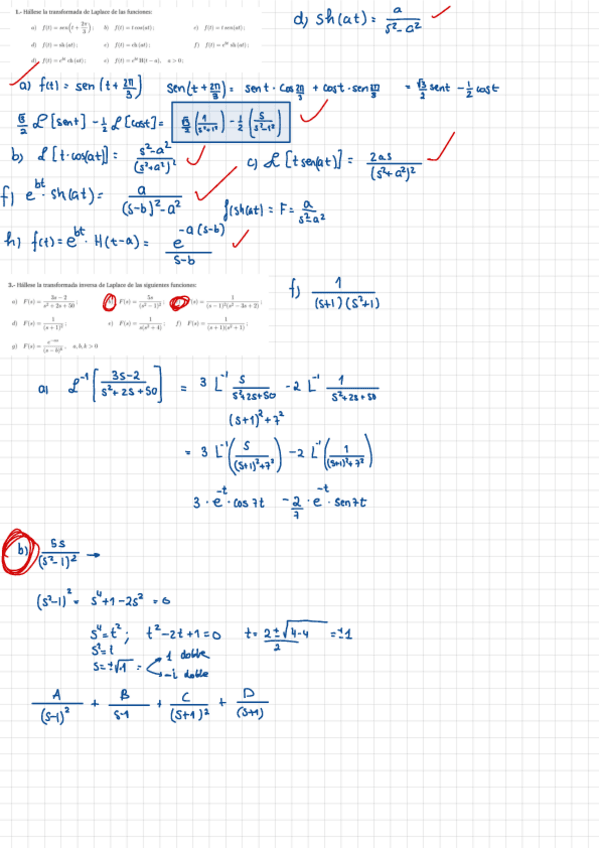 1.- Hállese la transformada de Laplace de las funciones:
d) sh(at) = a/(s²-a²)
a) f(t) = sen(t + 2π/3);  b) f(t) = t cos(at);  c) f(t) = t sen(at);
d) f(t) = sh(at);  e) f(t) = ch(at);  f) f(t) = e^{bt} sh(at);
f(t) = e^{bt} ch(at);  f(t) = e^{bt} H(t-a), a > 0;
a) f(t) = sen(t + 2π/3)  sen(t + 2π/3) = sent · cos 2π/3 + cost · sen 2π/3
√3/2 ℒ[sent] - 1/2 ℒ[cost] =
b) ℒ[t·cos(at)] = (s²-a²)/(s²+a²)²  c) ℒ[t sen(at)] = 2as/(s²+a²)²
f) e^{bt}·sh(at) = a/((s-b)²-a²)  f(sh(at)) = F = a/(s²-a²)
h) f(t) = e^{bt}·H(t-a) = e^{-a(s-b)}/(s-b)
3.- Hállese la transformada inversa de Laplace de las siguientes funciones:
f) 1/((s+1)(s²+1))
a) F(s) = (3s-2)/(s²+2s+50);  F(s) = 5s/(s²-1)²;  (s) = 1/((s-1)²(s²-3s+2));
d) F(s) = 1/(s+1)²;  e) F(s) = 1/(s(s²+4));  f) F(s) = 1/((s+1)(s²+1));
g) F(s) = e^{-as}/(s-b)^k, a,b,k > 0
a) ℒ⁻¹[(3s-2)/(s²+2s+50)] = 3 L⁻¹ s/(s²+2s+50) - 2 L⁻¹ 1/(s²+2s+50)
(s+1)²+7²
= 3 L⁻¹(s/((s+1)²+7²)) - 2 L⁻¹(1/((s+1)²+7²))
3·e^{-t}·cos 7t - 2/7·e^{-t}·sen 7t
b) 5s/(s²-1)² →
(s²-1)² = s⁴+1-2s² = 0
s⁴=t²; t²-2t+1=0 t = (2±√(4-4))/2 = ±1
s²=t
s=±√1 = 1 doble
-1 doble
A/(s-1)² + B/(s-1) + C/(s+1)² + D/(s+1)